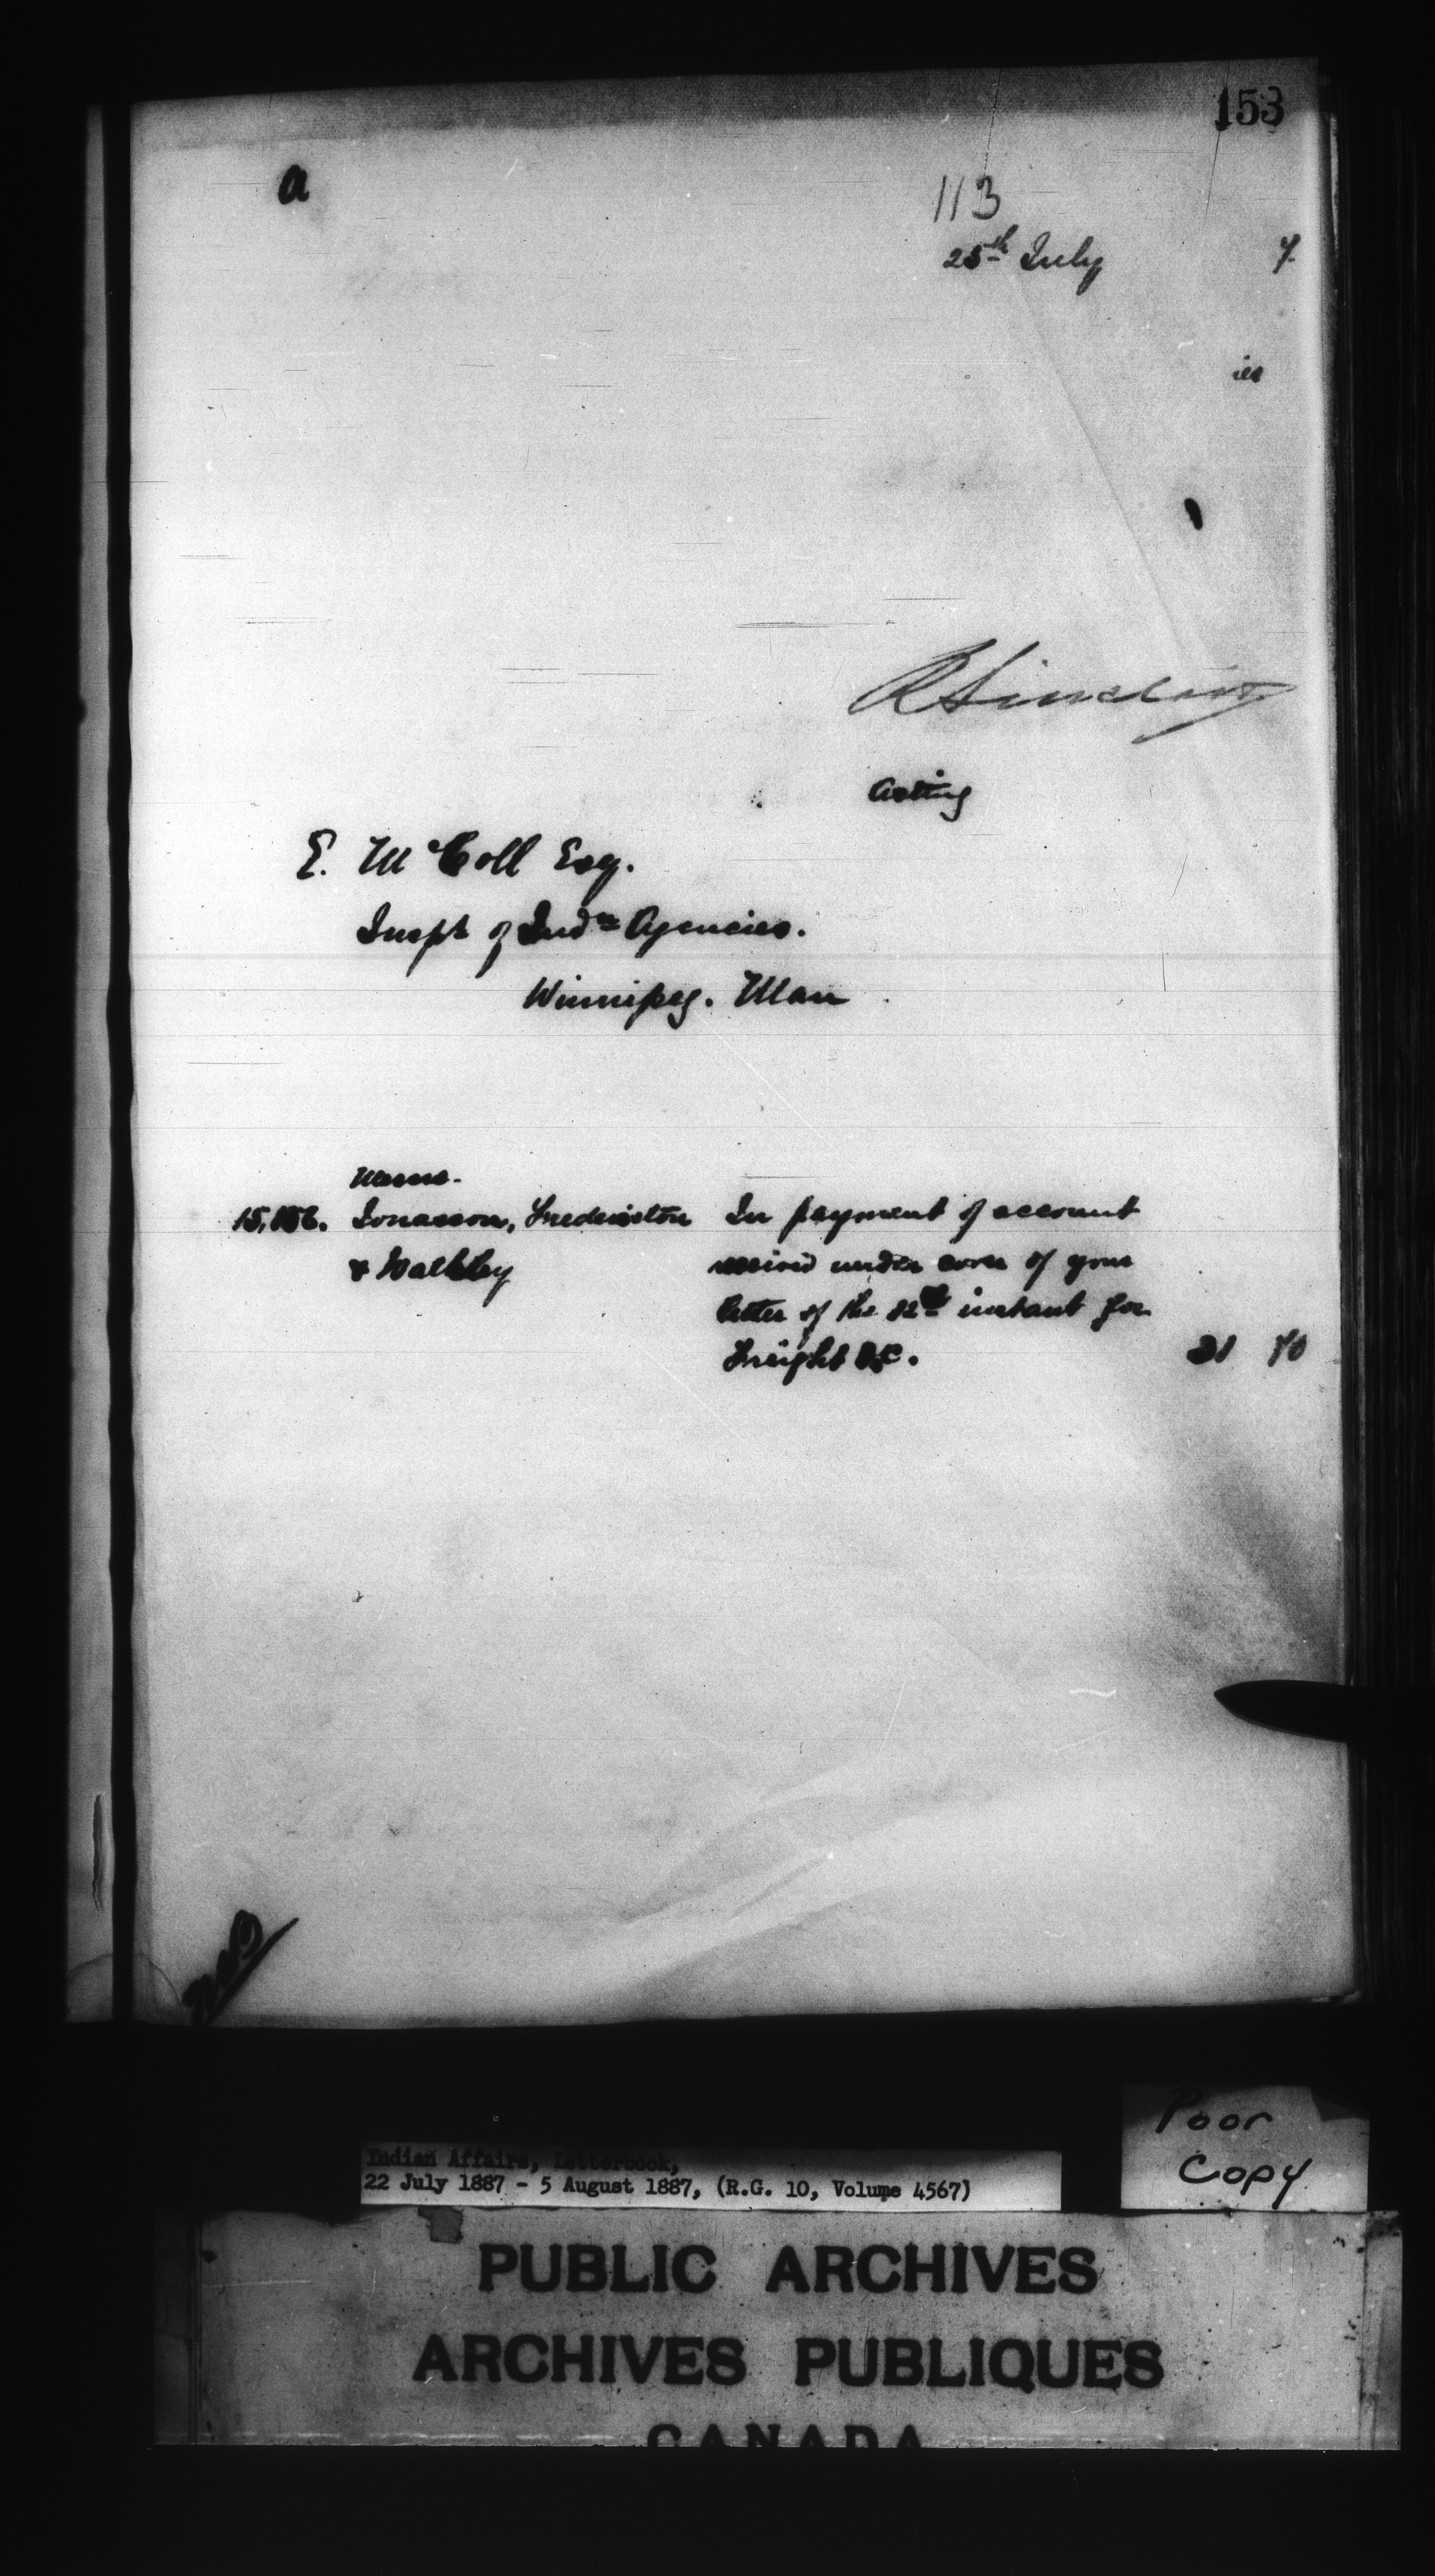 153
a
113
25th July 7.
ies
R Sinclair
Acting
E. McColl Esq.
Inspt of Indn Agencies.
Winnipeg. Man
Messrs.
15,156. Jonasson, Frederickson In payment of account
& Walkley received under cover of your
letter of the instant for
Freight &c. 21 70
Poor
Copy
Indian Affairs, Letterbook,
22 July 1887 - 5 August 1887, (R.G. 10, Volume 4567)
PUBLIC ARCHIVES
ARCHIVES PUBLIQUES
CANADA